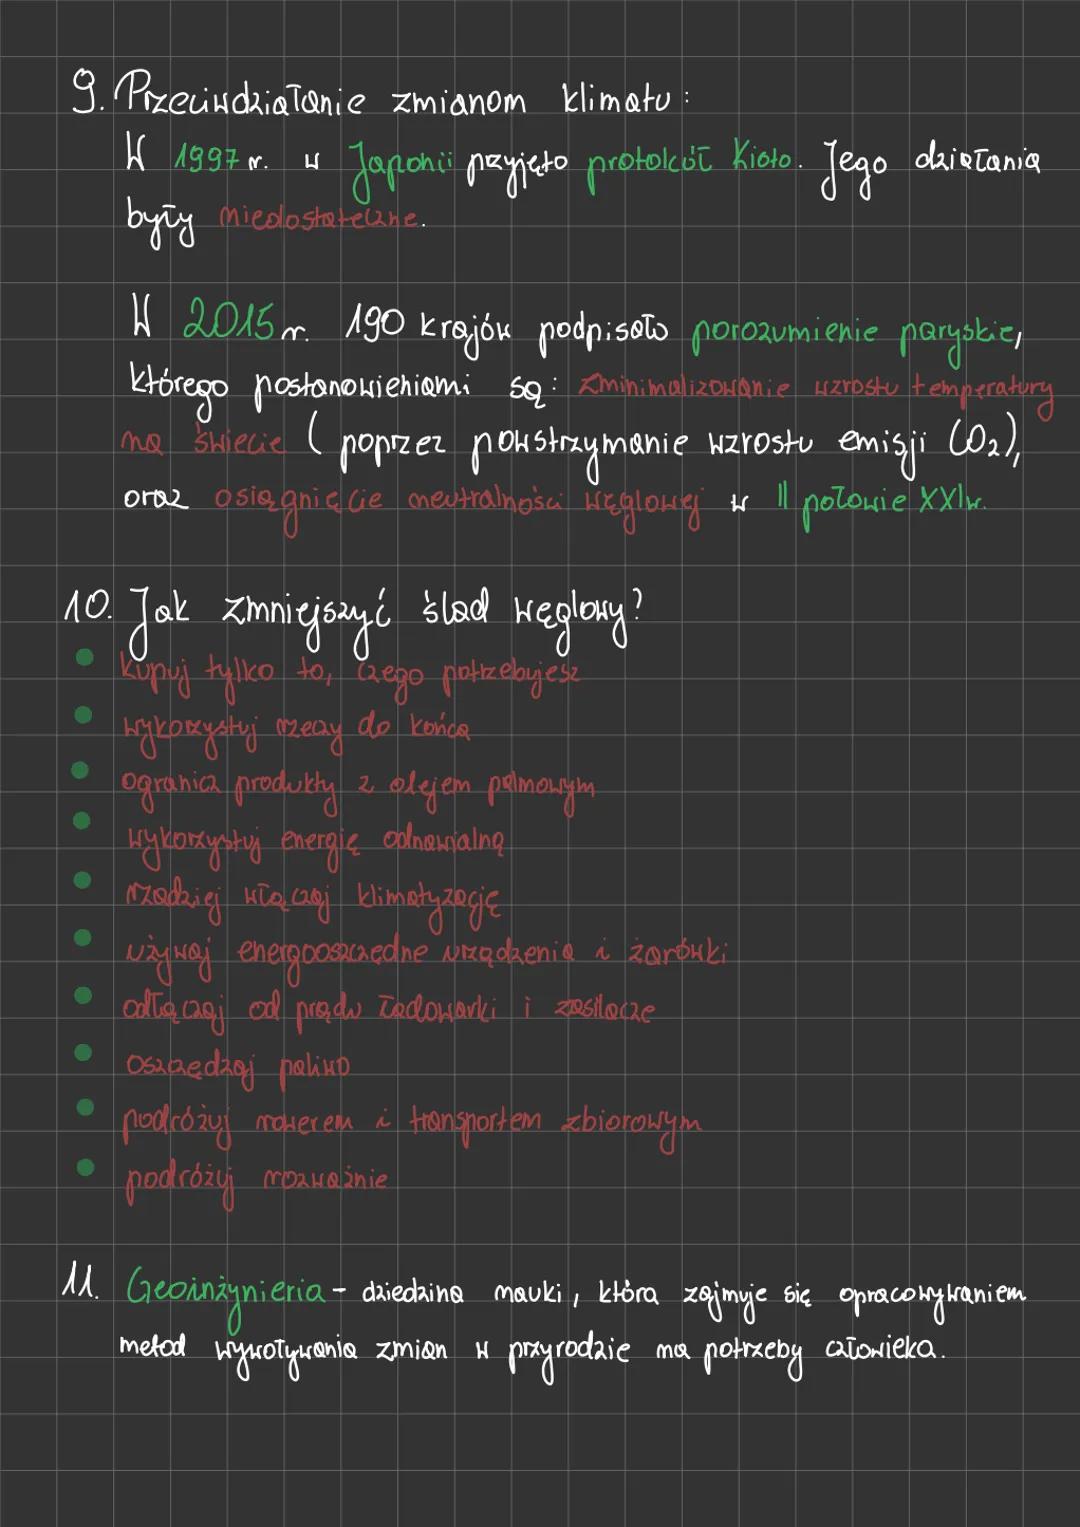 9. Przeciwdziałanie zmianom klimatu:
W 1997 r. w Japonii przyjęto protokół Kioto. Jego działania
były niedostateczne.
W 2015 r. 190 krajów podpisało porozumienie paryskie,
którego postanowieniami są: zminimalizowanie wzrostu temperatury
na świecie (poprzez powstrzymanie wzrostu emisji CO₂),
oraz osiągnięcie neutralności węglowej w II połowie XXI w.
10. Jak zmniejszyć ślad węglowy?
• kupuj tylko to, czego potrzebujesz
• wykorzystuj rzeczy do końca
• ogranicz produkty z olejem palmowym
• wykorzystuj energię odnawialną
• rzadziej włączaj klimatyzację
• używaj energooszczędne urządzenia i żarówki
• odłączaj od prądu ładowarki i zasilacze
• oszczędzaj paliwo
• podróżuj rowerem i transportem zbiorowym
• podróżuj rozważnie
11. Geoinżynieria - dziedzina nauki, która zajmuje się opracowywaniem
metod wywoływania zmian w przyrodzie na potrzeby człowieka.